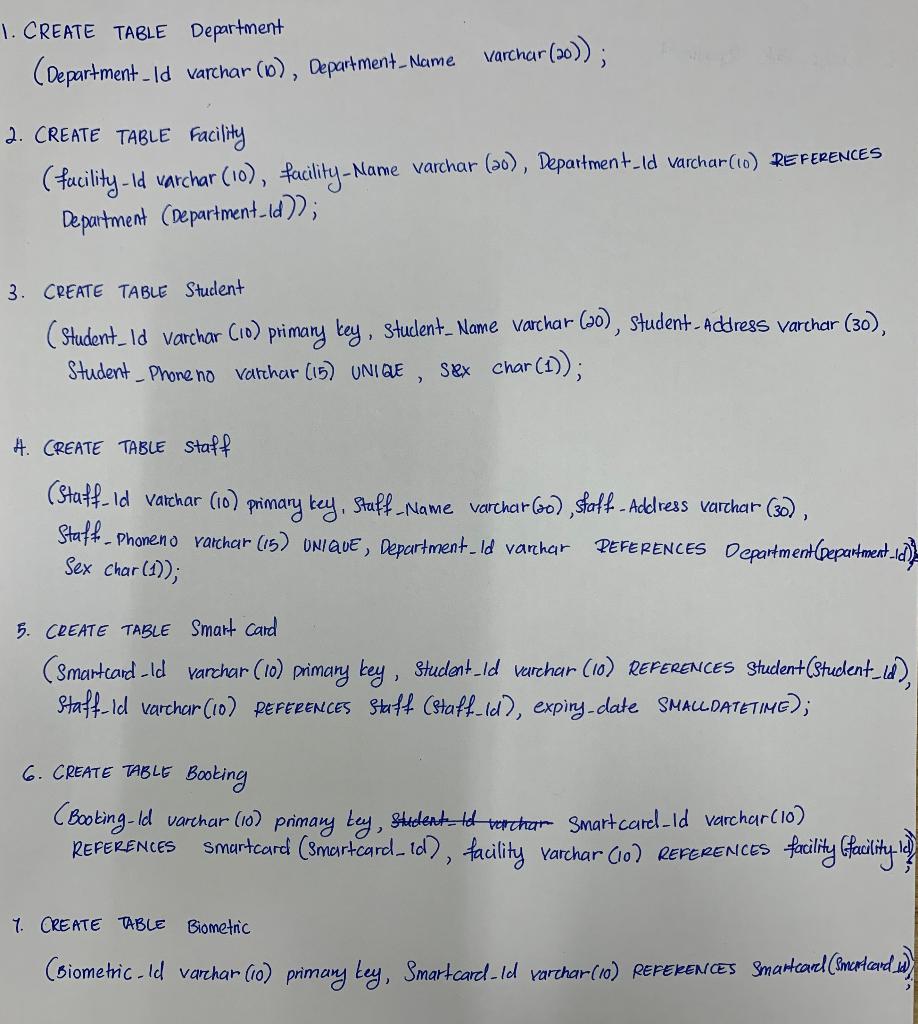 1. CREATE TABLE Department
(Department_Id varchar (10), Department_Name varchar (20));
2. CREATE TABLE Facility
(facility-Id varchar (10), facility-Name varchar (20), Department_Id varchar (10) REFERENCES
Department (Department_Id));
3. CREATE TABLE Student
(Student_Id varchar (10) primary key, Student_Name varchar (20), Student-Address varchar (30),
Student_Phone no varchar (15) UNIQUE, Sex char(1));
4. CREATE TABLE Staff
(Staff_Id varchar (10) primary key, Staff_Name varchar (20), Staff-Address varchar (30),
Staff_Phoneno varchar (15) UNIQUE, Department_Id varchar REFERENCES Department (Department_Id),
Sex char(1));
5. CREATE TABLE Smart Card
(Smartcard_Id varchar (10) primary key, Student_Id varchar (10) REFERENCES Student (Student_Id),
Staff_Id varchar (10) REFERENCES Staff (Staff_Id), expiry_date SMALLDATETIME);
6. CREATE TABLE Booking
(Booking-Id varchar (10) primary key, Student_Id varchar Smartcard_Id varchar (10)
REFERENCES Smartcard (Smartcard_Id), facility varchar (10) REFERENCES facility (facility-Id));
7. CREATE TABLE Biometric
(Biometric-Id varchar (10) primary key, Smartcard_Id varchar (10) REFERENCES Smartcard (Smartcard_Id));